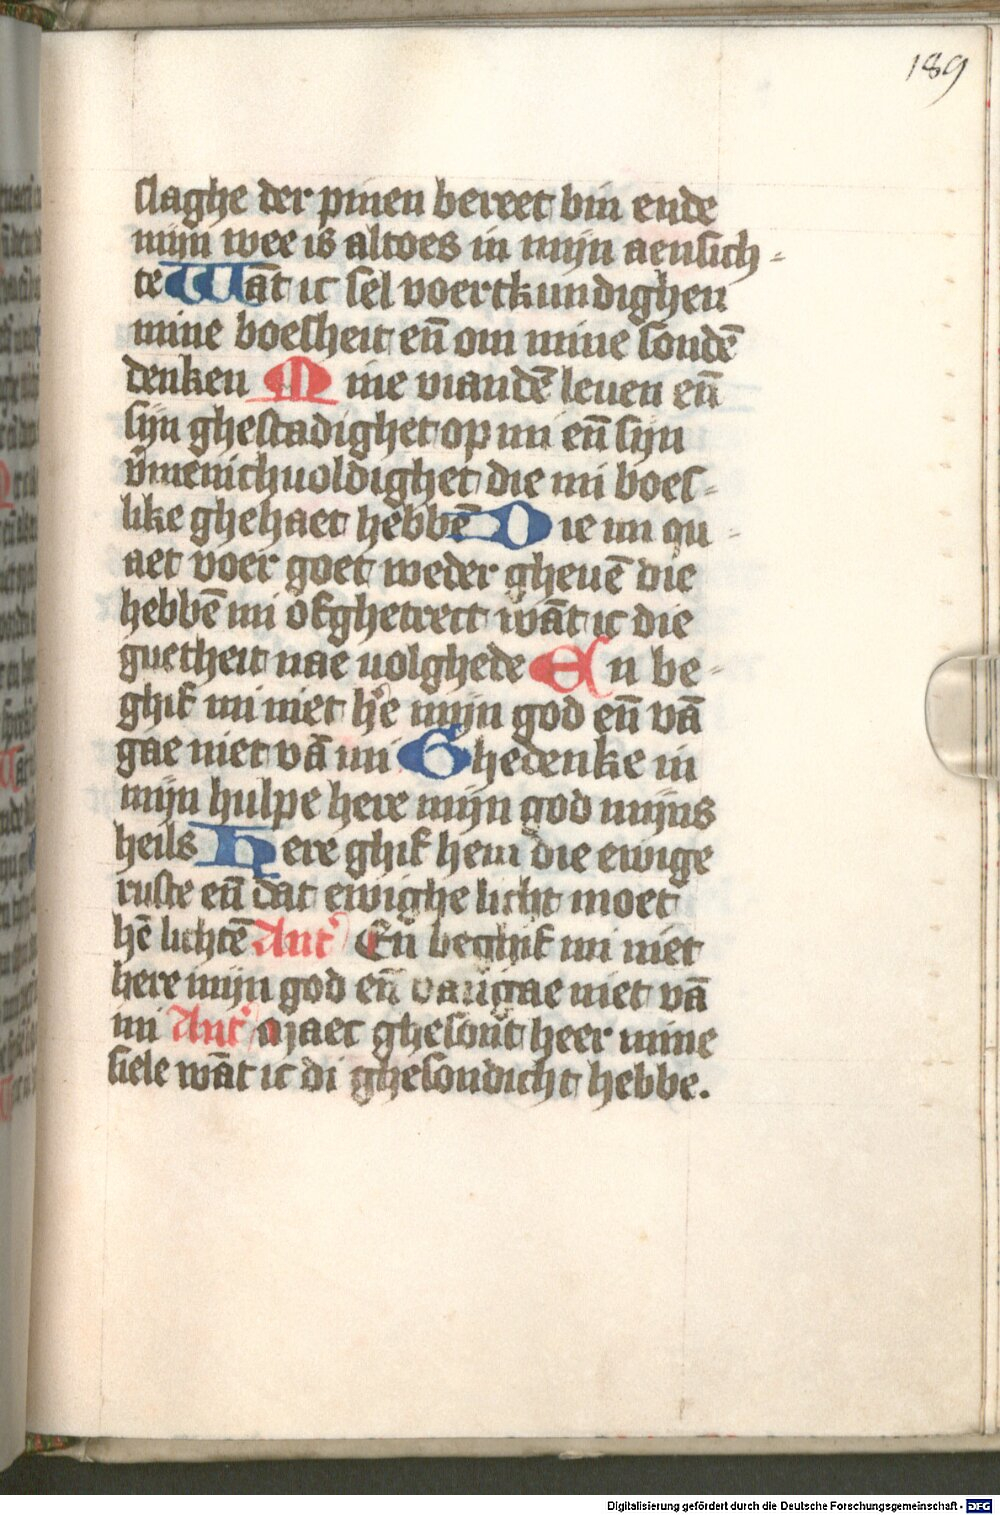 189
slaghe der pinen bereet bin ende
mijn wee is altoes in mijn aensich-
te Wāt ic sel voertkundighen
mine boesheit eñ om mine sondē
denken Mine viandē leuen eñ
sijn ghestadighet op mi eñ sijn
v̄menichuoldighet die mi boes-
like ghehaet hebbē Die mi qu-
aet voer goet weder gheuē die
hebbē mi ofghetrect wāt ic die
guetheit nae uolghede En be-
ghif mi niet he mijn god eñ vā
gae niet vā mi Ghedenke in
mijn hulpe here mijn god mijns
heils Here ghif hem die ewige
ruste eñ dat ewighe licht moet
hē lichtē Ant' Eñ beghif mi niet
here mijn god eñ van gae niet vā
mi Ant' Maec ghesont heer mine
siele wāt ic di ghesondicht hebbe.
Digitalisierung gefördert durch die Deutsche Forschungsgemeinschaft - DFG